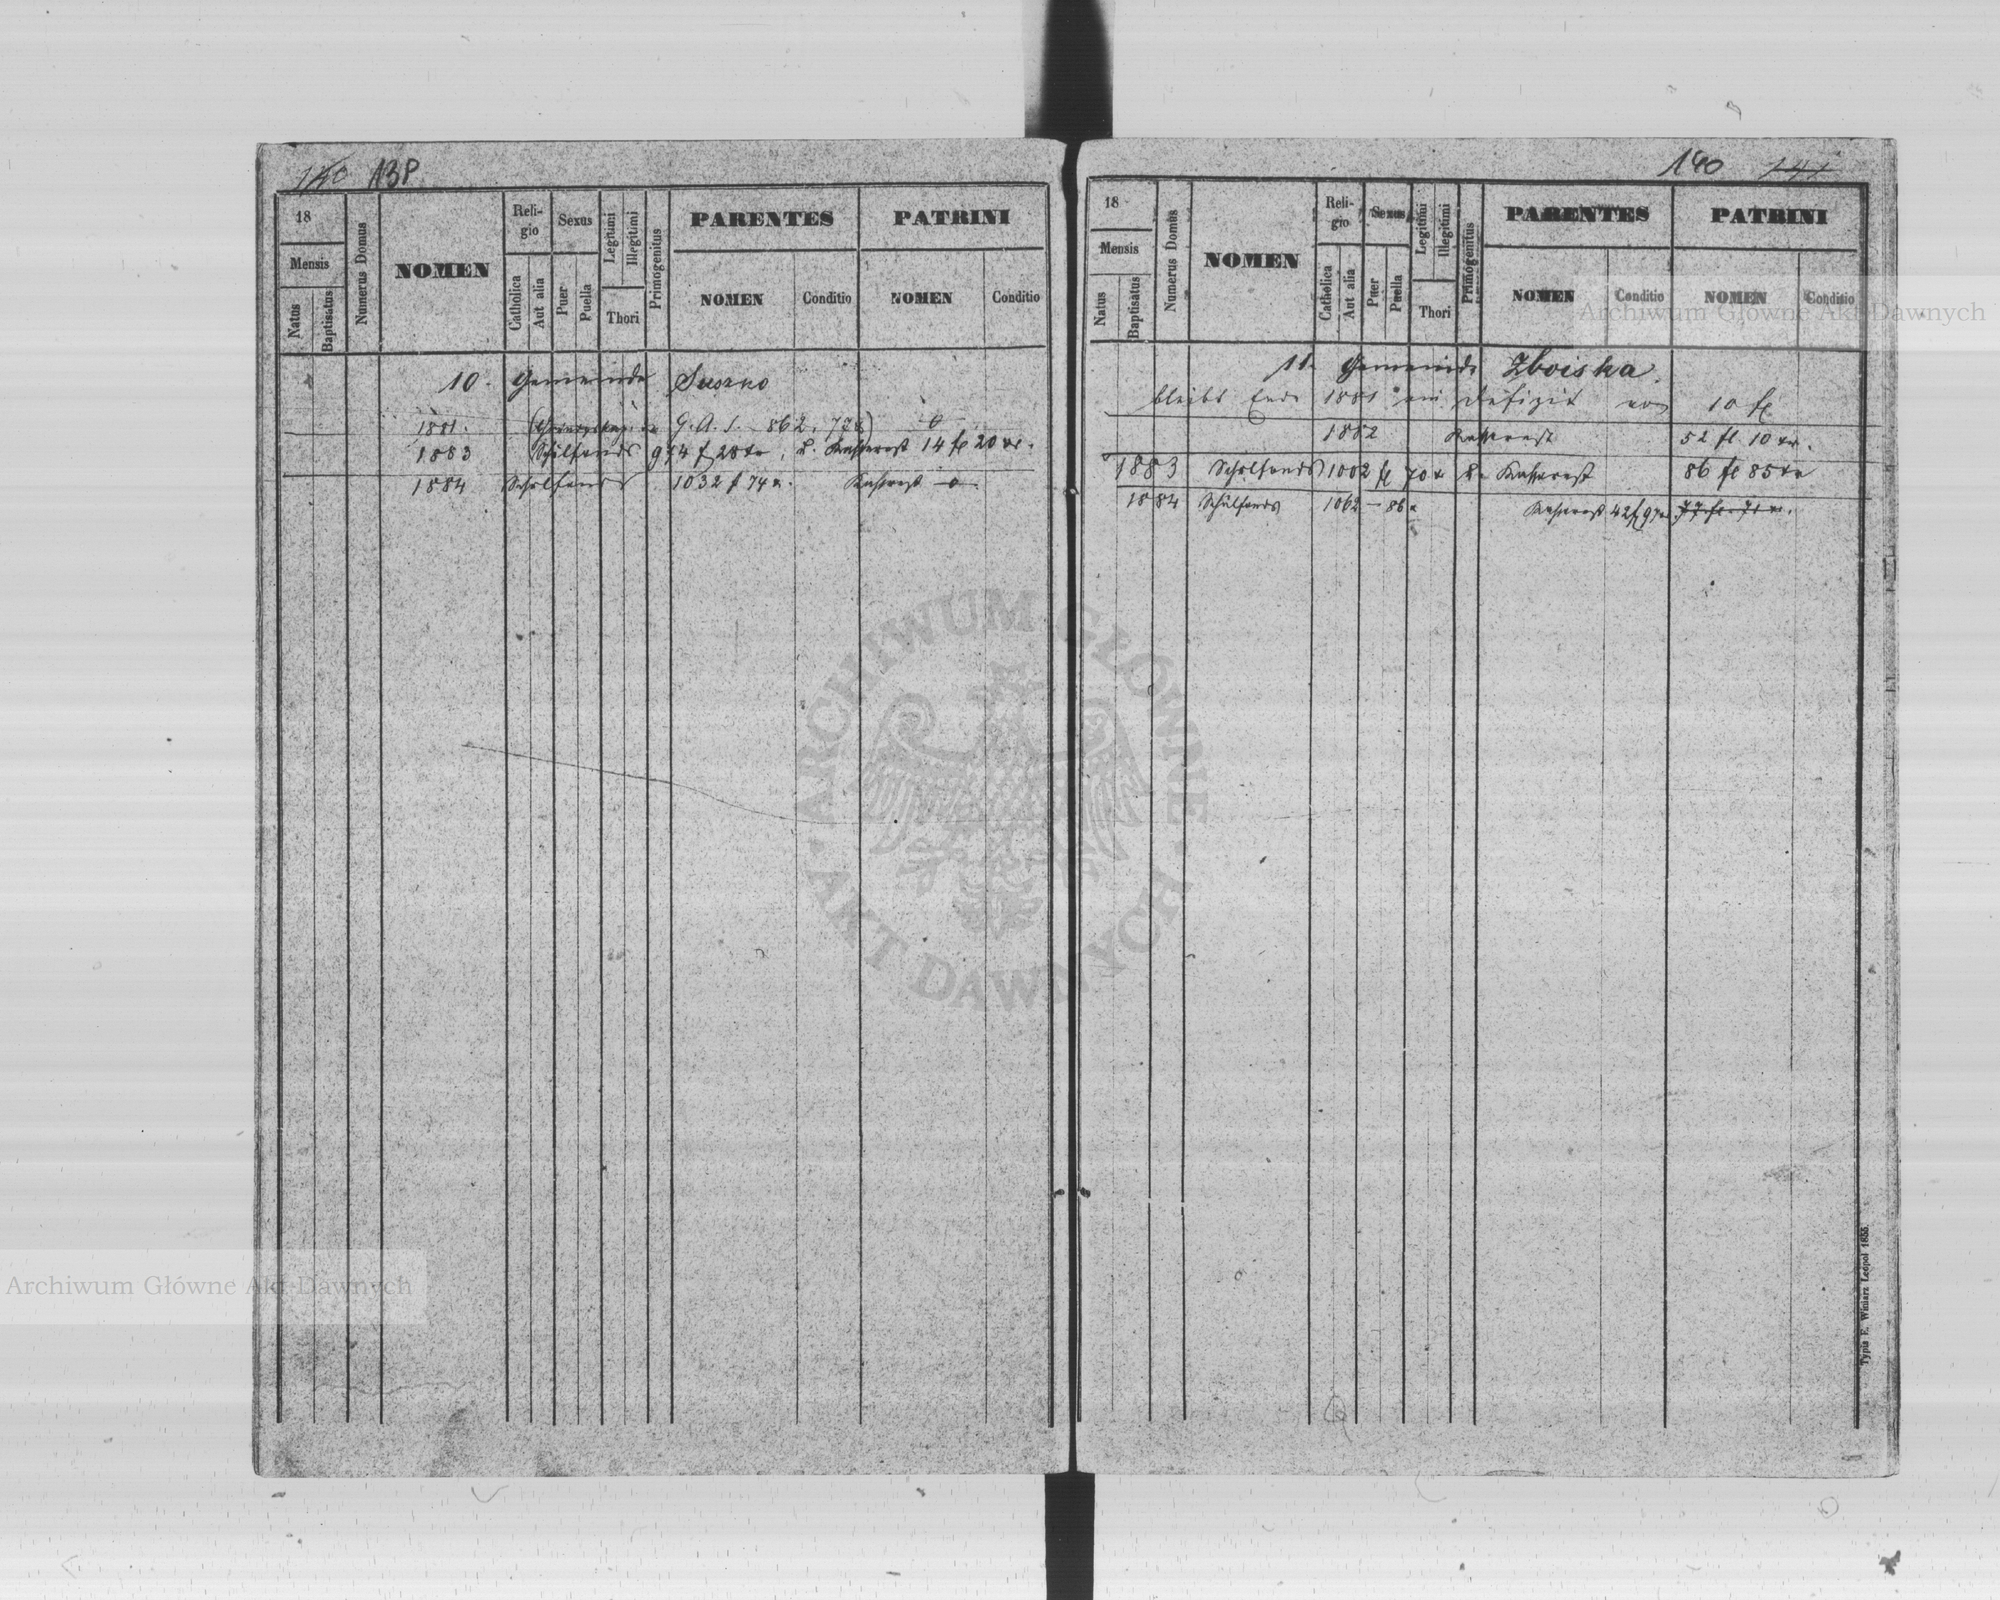 140 138
18
Mensis
Natus
Baptisatus
Numerus Domus
NOMEN
Religio
Catholica
Aut alia
Sexus
Puer
Puella
Legitimi
Illegitimi
Thori
Primogenitus
PARENTES
NOMEN
Conditio
PATRINI
NOMEN
Conditio
10. Gemeinde Suszno
1881. G. A. S. 862. 77 x) 0
1883 Schulfonds 974 f 28 xr, u. Kassarest 14 fl 20 xr.
1884 Schulfonds 1032 f 74 x. Kassarest 0
140 141
18
Mensis
Natus
Baptisatus
Numerus Domus
NOMEN
Religio
Catholica
Aut alia
Sexus
Puer
Puella
Legitimi
Illegitimi
Thori
Primogenitus
PARENTES
NOMEN
Conditio
PATRINI
NOMEN
Conditio
11. Gemeinde Zboiska.
bleibt Ende 1881 ein Defizit von 10 fl
1882 Kassarest 52 fl 10 xr.
1883 Schulfonds 1002 fl 70 x u. Kassarest 86 fl 85 xr
1884 Schulfonds 1062 — 86 x Kassarest 42 f 97 xr 77 fl 71 xr.
Typis E. Winiarz Leopol 1855.
Archiwum Główne Akt Dawnych
ARCHIWUM GŁÓWNE · AKT DAWNYCH ·
Archiwum Główne Akt Dawnych